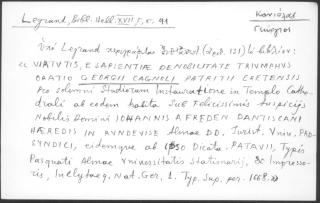 Legrand, Bibl. Hell. XVII Γ, σ. 41
Κανιόλας
Γεώργιος
Ὑπὸ Legrand περιγράφεται (ἀριθ. 121) τὸ βιβλίον:
« VIRTUTIS, ET SAPIENTIAE DE NOBILITATE TRIUMPHUS
ORATIO GEORGII CAGNOLI PATRITII CRETENSIS
Pro solemni Studiorum Instauratione in Templo Cathe-
drali ab eodem habita Sub Felicissimis Auspicijs
Nobilis Domini IOHANNIS A FREDEN. DANTISCANI
HAEREDIS IN RYNDEVISE Almae DD. Iurist. Univ. PRO-
SYNDICI, eidemque ab ipso Dicata. PATAVII, Typis
Pasquati Almae Universitatis Stationarij, & Impresso-
ris, Inclytaeq. Nat. Ger. I. Typ. Sup. per. 1668. »